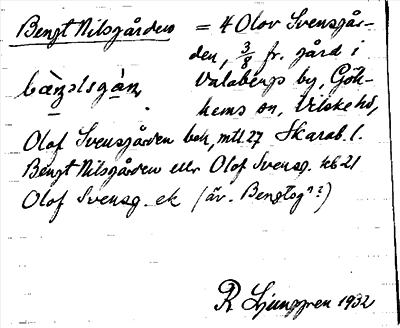 Bengt Nilsgården = 4 Olov Svensgår-
den, 3/8 fr. gård i
Valabergs by, Gök-
hems sn, Vilske hd,
Skarab. l.
Olof Svensgården bok, mtl 27
Bengt Nilsgården eller Olof Svensg. hb 21
Olof Svensg. ek (äv. Bengtsg. ?)
R Ljunggren 1932